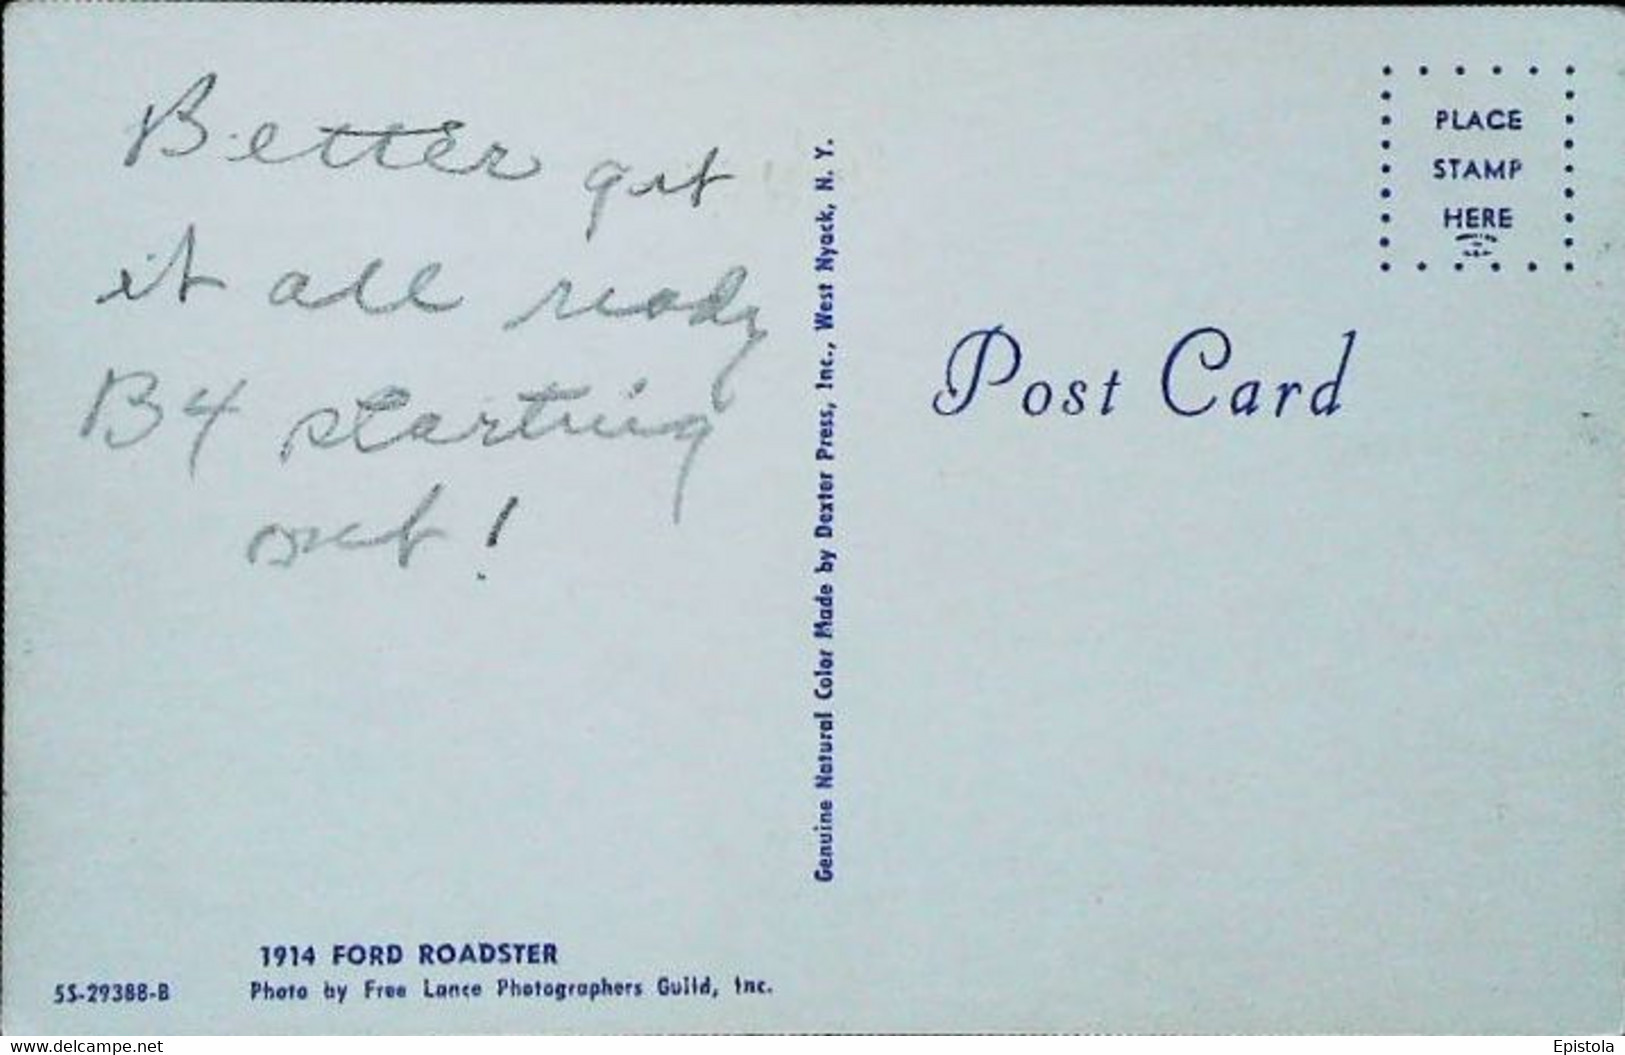 Better get
it all ready
B4 starting
out!
Genuine Natural Color Made by Dexter Press, Inc., West Nyack, N. Y.
PLACE
STAMP
HERE
Post Card
1914 FORD ROADSTER
5S-29388-B
Photo by Free Lance Photographers Guild, Inc.
www.delcampe.net
Epistola